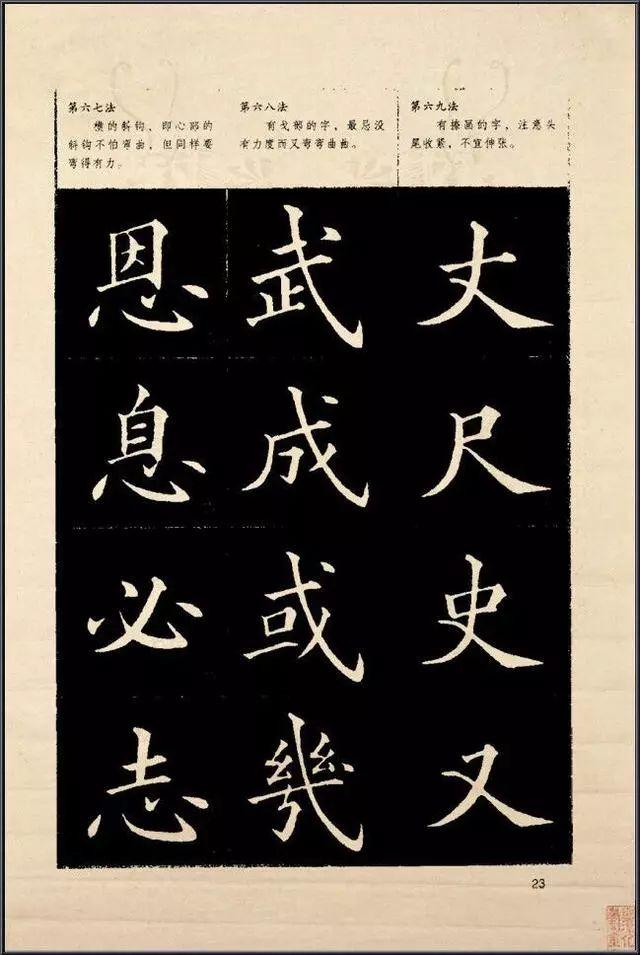 第六七法
横的斜钩、即心部的
斜钩不怕弯曲，但同样要
弯得有力。
第六八法
有戈部的字，最忌没
有力度而又弯弯曲曲。
第六九法
有捺画的字，注意头
尾收紧，不宜伸张。
恩息必志
武成或幾
丈尺史又
23